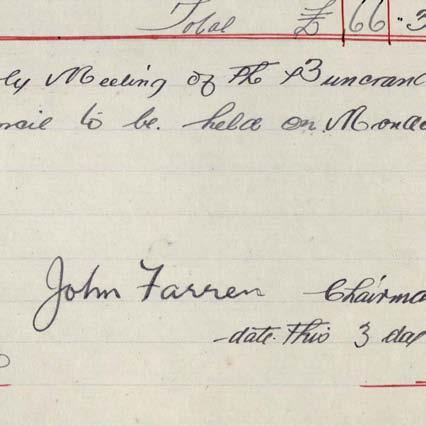 Total £ 66 " 3
ly Meeting of the Buncran
ncil to be. held on Monda
John Farren Chairma
date this 3 day